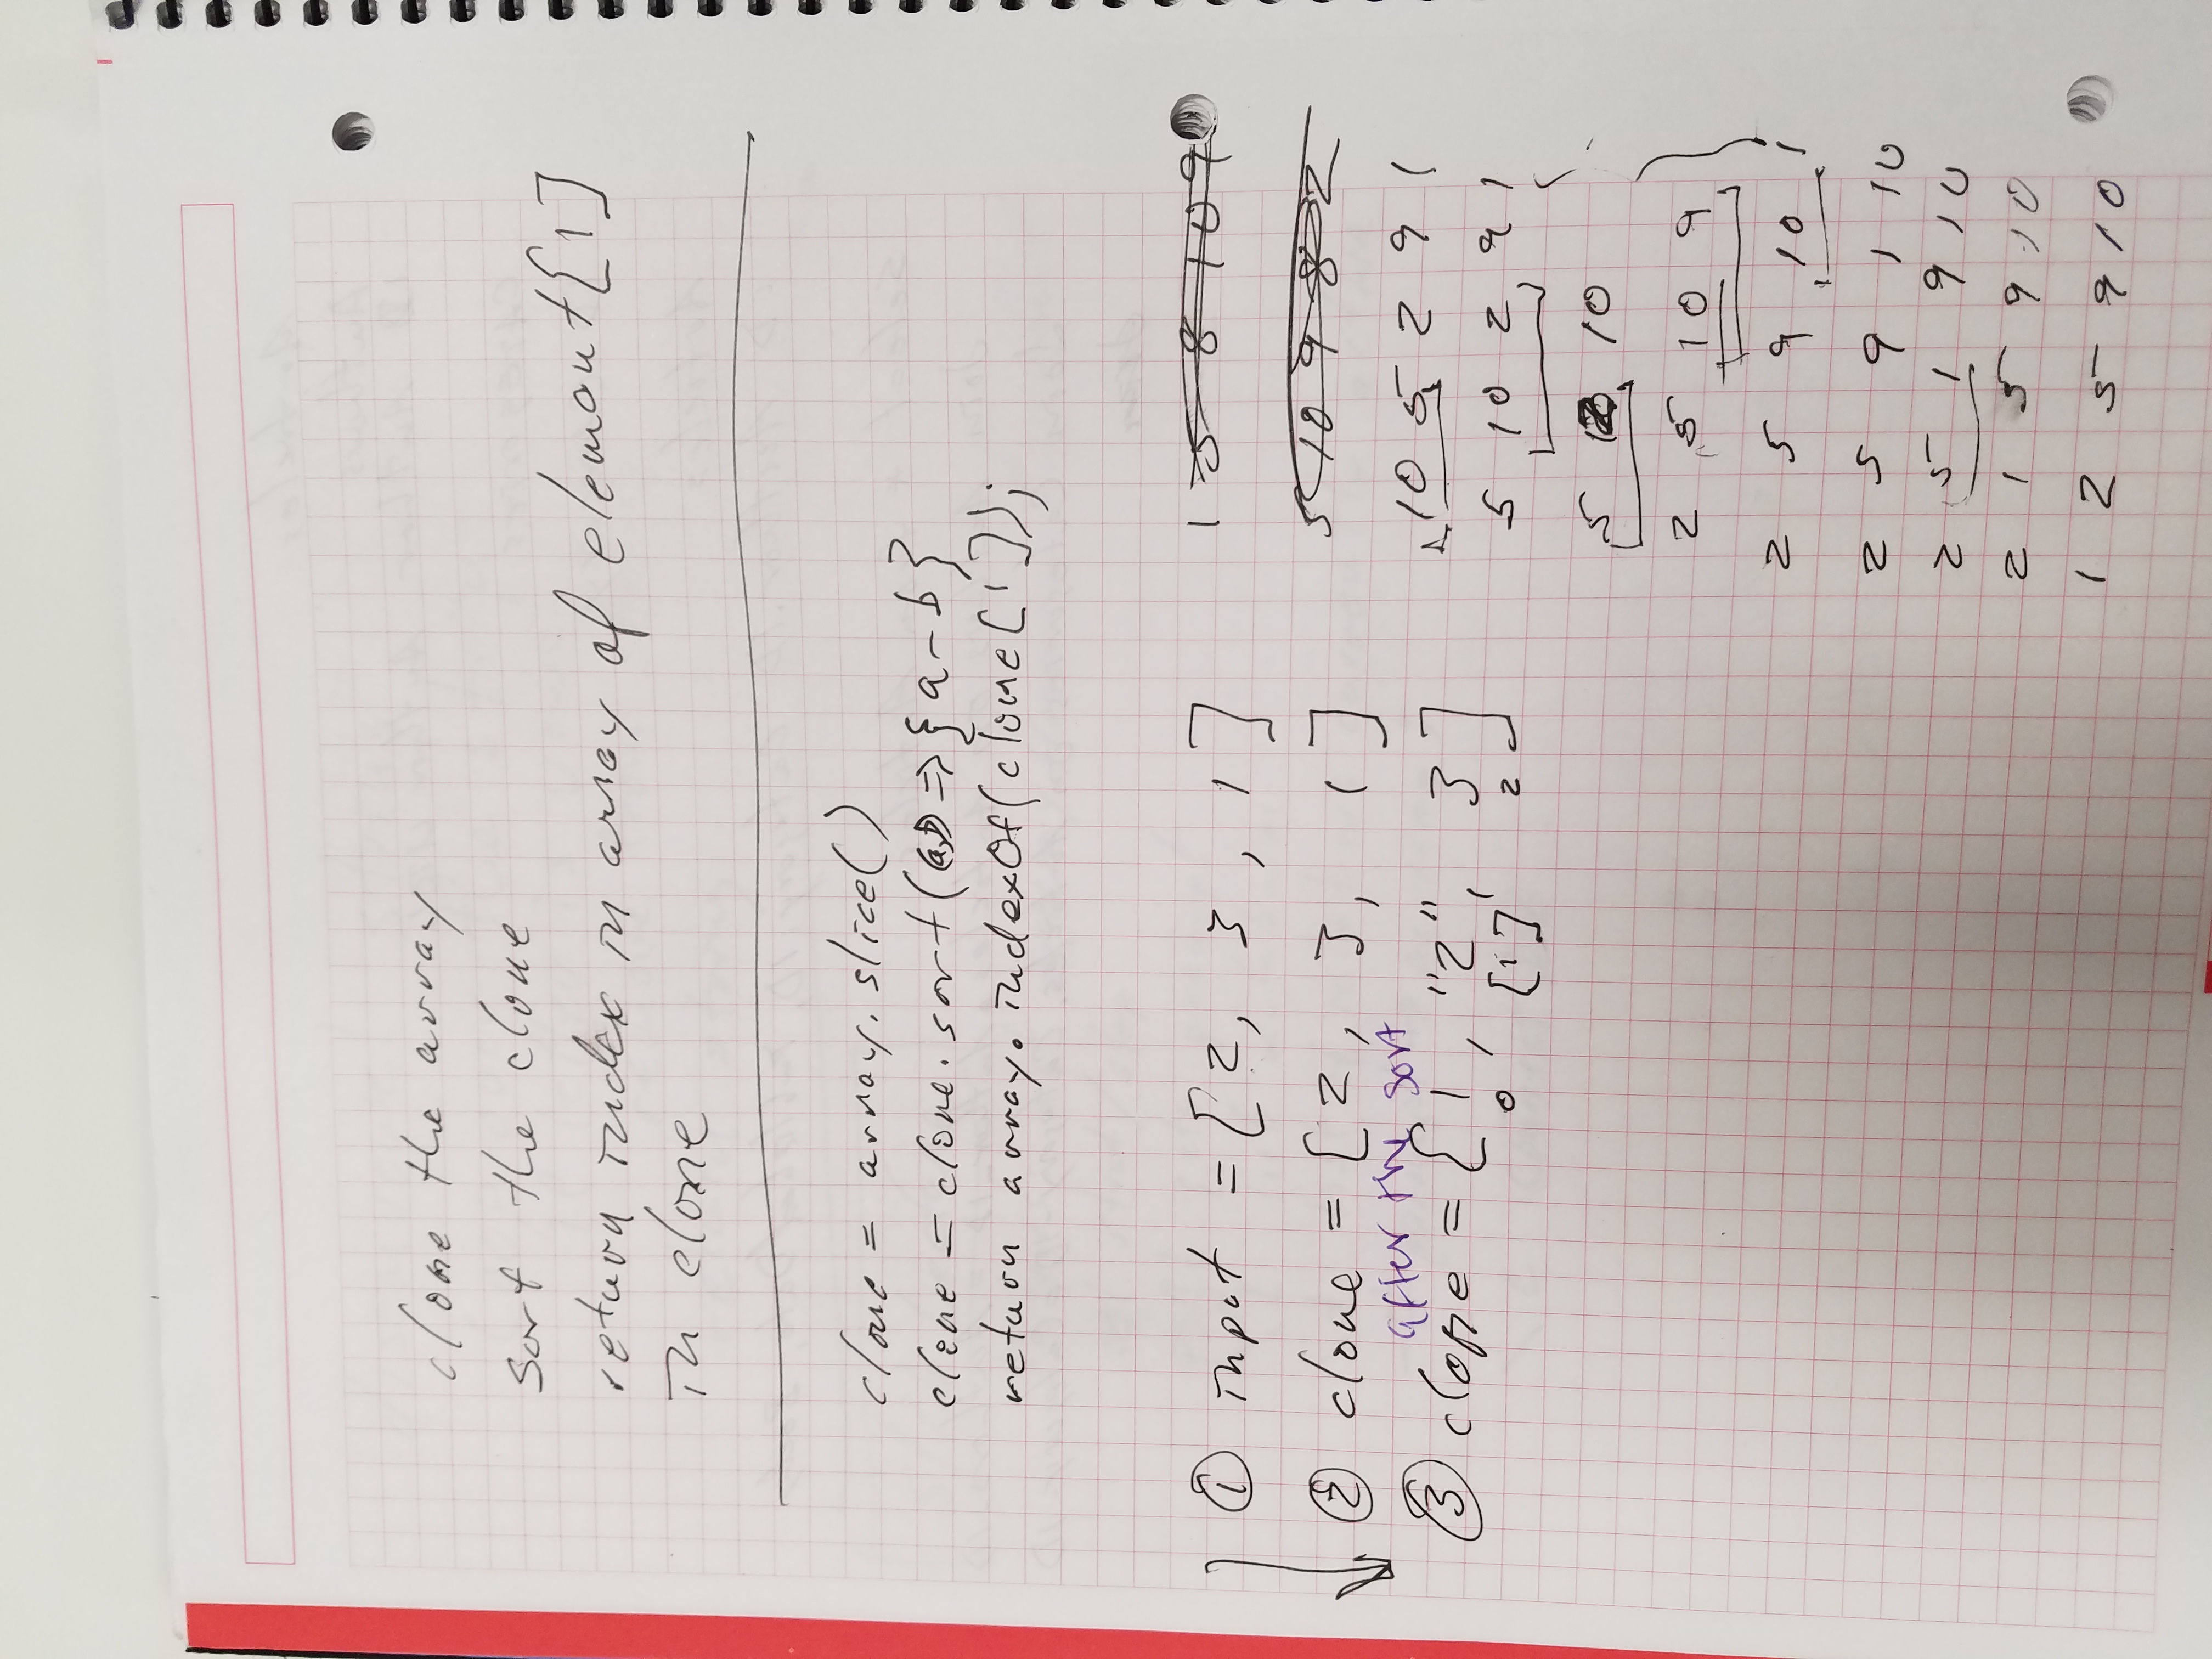 clone the array
sort the clone
return index in array of element[1]
in clone
clone = array.slice()
clone = clone.sort((a,b) => {a-b}
return array.indexOf(clone[1]);
① input = [2, 3, 1]
② clone = [2, 3, 1]
after the sort
③ clone = [1, "2", 3]
0 [1] 2
1 5 8 10 9
5 10 9 8 2
10 5 2 9 1
5 10 2 9 1
5 2 10
2 5 10 9
2 5 9 10 1
2 5 9 1 10
2 5 1 9 10
2 1 5 9 10
1 2 5 9 10